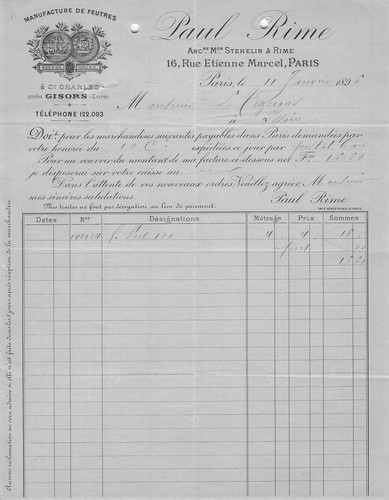 MANUFACTURE DE FEUTRES
à St CHARLES
près GISORS (Eure)
TÉLÉPHONE 122.093
Paul Rime
ANCne Mon STEHELIN & RIME
16, Rue Etienne Marcel, PARIS
Paris, le 11 Janvier 1896
Monsieur
à
Doit pour les marchandises suivantes, payables dans Paris demandées par
votre honorée du expédiées ce jour par
Pour me couvrir du montant de ma facture ci-dessous net F
je disposerai sur votre caisse au
Dans l'attente de vos nouveaux ordres, Veuillez agréer, Monsieur
mes sincères salutations.
Paul Rime
Mes traites ne font pas dérogation au lieu de paiement.
Dates Nos Désignations Métrage Prix Sommes
4 4 16
port
Aucune réclamation ne sera admise si elle n'est faite dans les jours après réception de la marchandise.